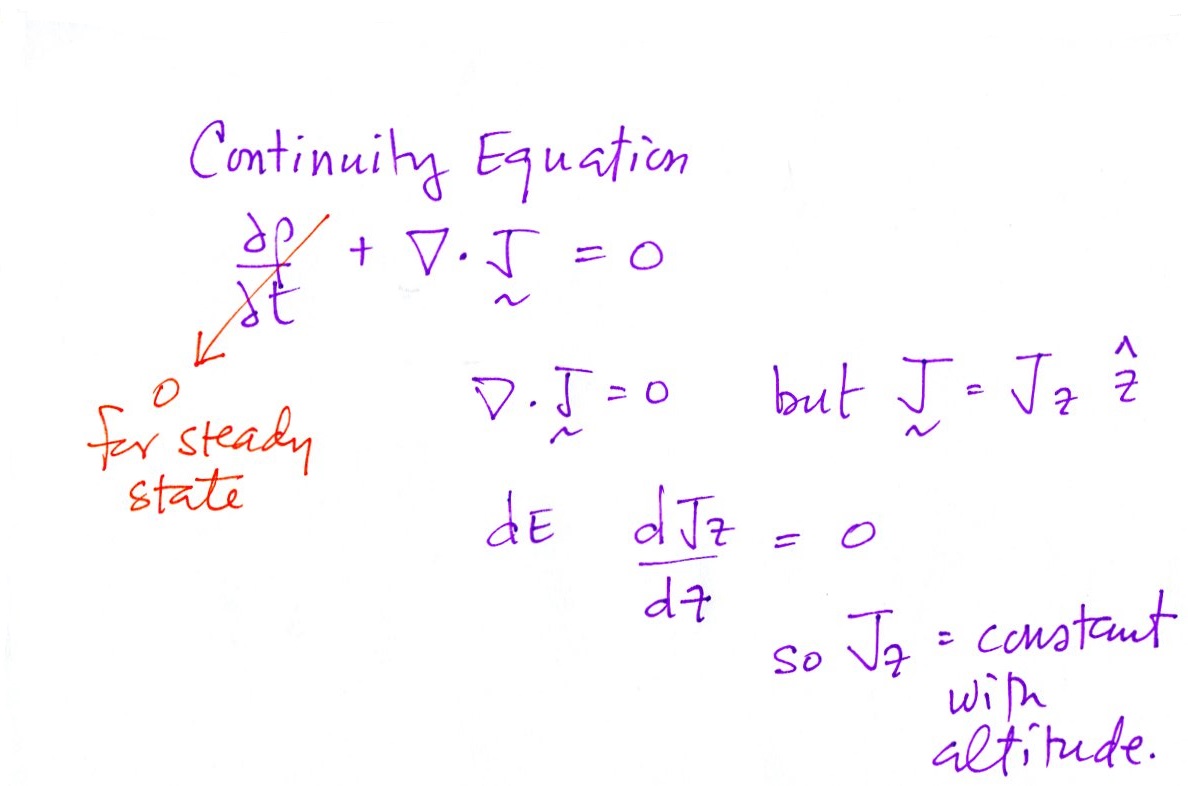 Continuity Equation
∂ρ/∂t + ∇·J̰ = 0
0
for steady
state
∇·J̰ = 0 but J̰ = J_z ẑ
dE dJ_z/dz = 0
so J_z = constant
with
altitude.